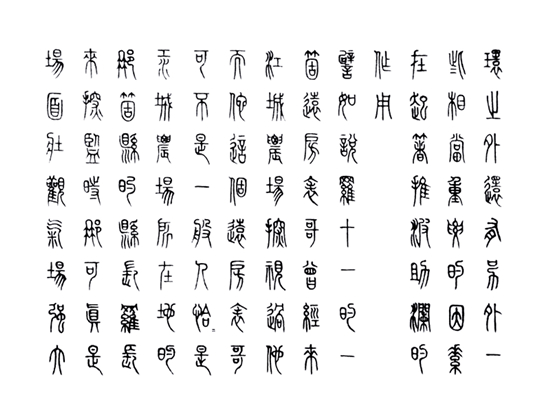 環之外還有另外一
些相當重要的因素
在起著推波助瀾的
作用
譬如說羅十一的一
箇遠房表哥曾經來
江城農場探視過他
而他這個遠房表哥
可不是一般人恰是
江城農場所在地的
那箇縣的縣長羅長
來探監時那可真是
場面壯觀氣場強大